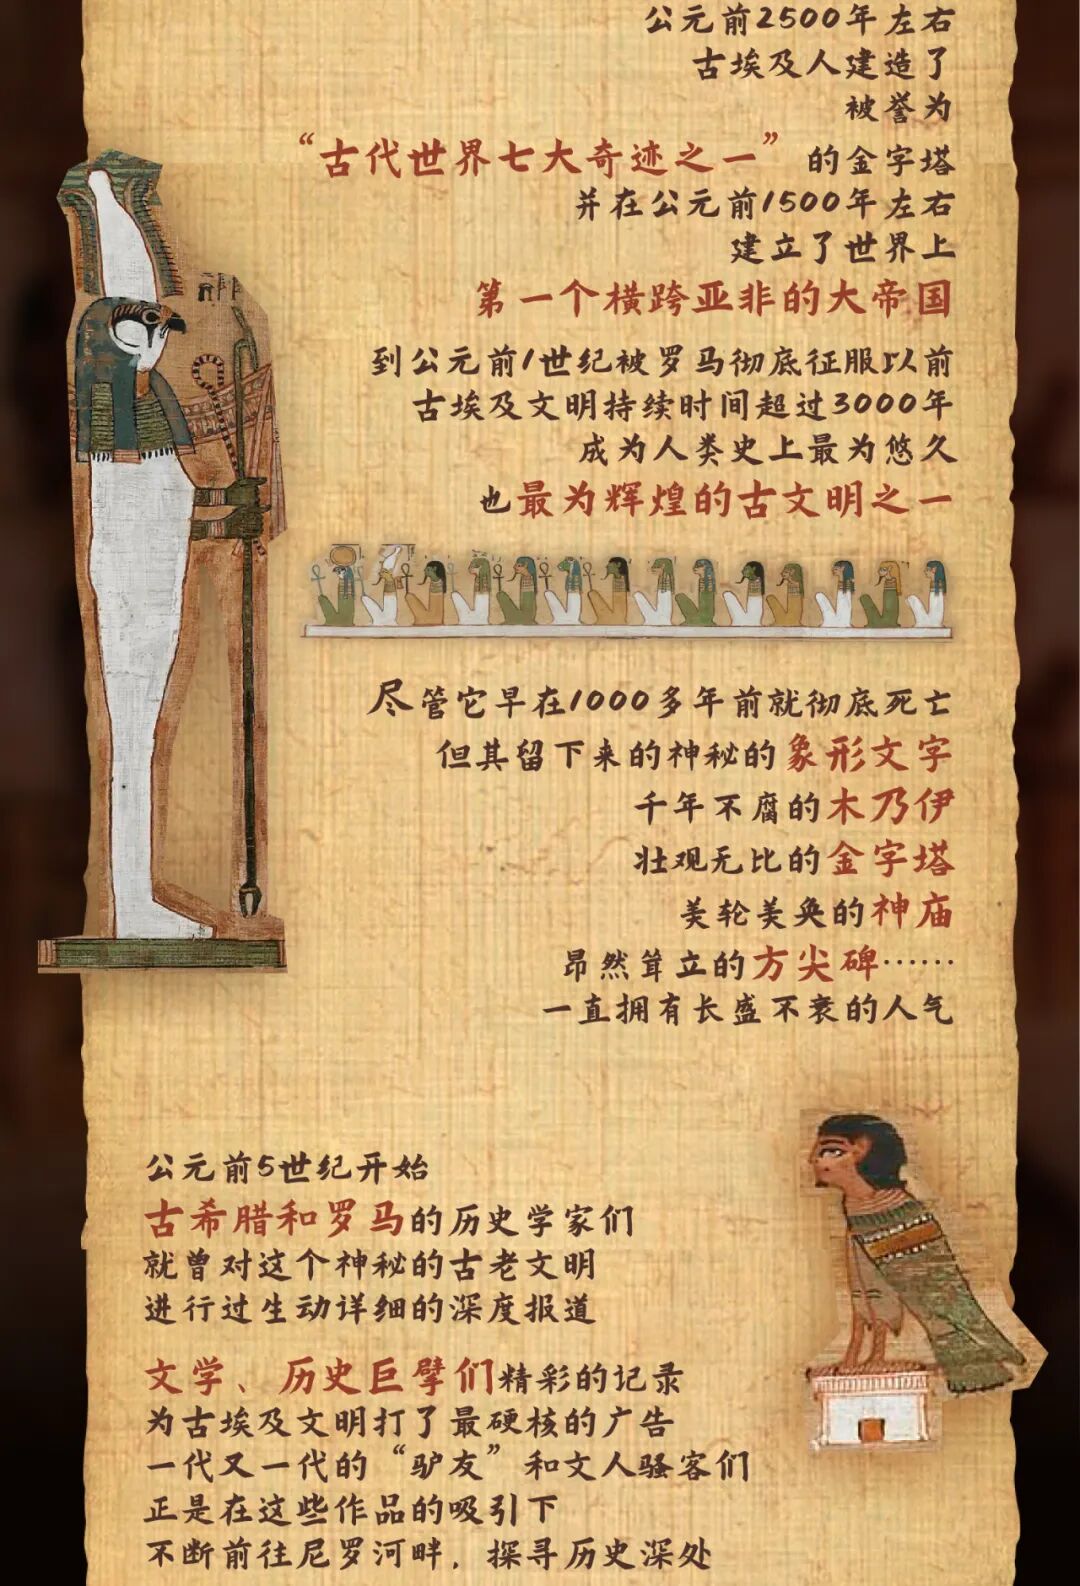 公元前2500年左右
古埃及人建造了
被誉为
“古代世界七大奇迹之一”的金字塔
并在公元前1500年左右
建立了世界上
第一个横跨亚非的大帝国
到公元前1世纪被罗马彻底征服以前
古埃及文明持续时间超过3000年
成为人类史上最为悠久
也最为辉煌的古文明之一
尽管它早在1000多年前就彻底死亡
但其留下来的神秘的象形文字
千年不腐的木乃伊
壮观无比的金字塔
美轮美奂的神庙
昂然耸立的方尖碑……
一直拥有长盛不衰的人气
公元前5世纪开始
古希腊和罗马的历史学家们
就曾对这个神秘的古老文明
进行过生动详细的深度报道
文学、历史巨擘们精彩的记录
为古埃及文明打了最硬核的广告
一代又一代的“驴友”和文人骚客们
正是在这些作品的吸引下
不断前往尼罗河畔，探寻历史深处